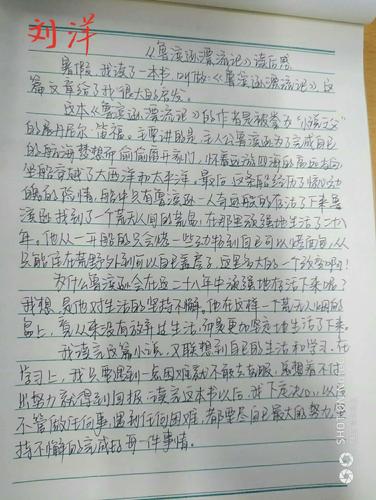 刘洋
《鲁滨逊漂流记》读后感
暑假,我读了一本书,叫做《鲁滨逊漂流记》,这
篇文章给了我很大的启发。
这本《鲁滨逊漂流记》的作者是被誉为“小说之父”
的丹尼尔·笛福。主要讲的是:主人公鲁滨逊为了完成自己
的航海梦想而偷偷离开家门,怀着远游四海的高远志向,
坐船穿越了大西洋和太平洋。最后,这条船经历了惊心动
魄的险情,船中只有鲁滨逊一人奇迹般的存活了下来。鲁
滨逊找到了一个荒无人烟的荒岛,在那里顽强地生活了二十八
年。他从一开始的只会一些到自己可以,从
只能住在荒野外到可以自己盖房子,这是多大的一个改变啊!
为什么鲁滨逊会在这二十八年中顽强地存活下来呢?
我想,是他对生活的坚持不懈。他在这样一个荒无人烟的
岛上,从来没有放弃过生活,而是更加坚定地生活了下来。
我读完这篇小说,又联想到自己的生活和学习,在
学习上,我只要遇到一点困难就不敢去克服,总想着不付
出努力就得到回报。读完这本书以后,我下定决心,以后
不管做任何事,遇到任何困难,都要尽自己最大的努力,坚
持不懈的完成好每一件事情。
SHOT ON